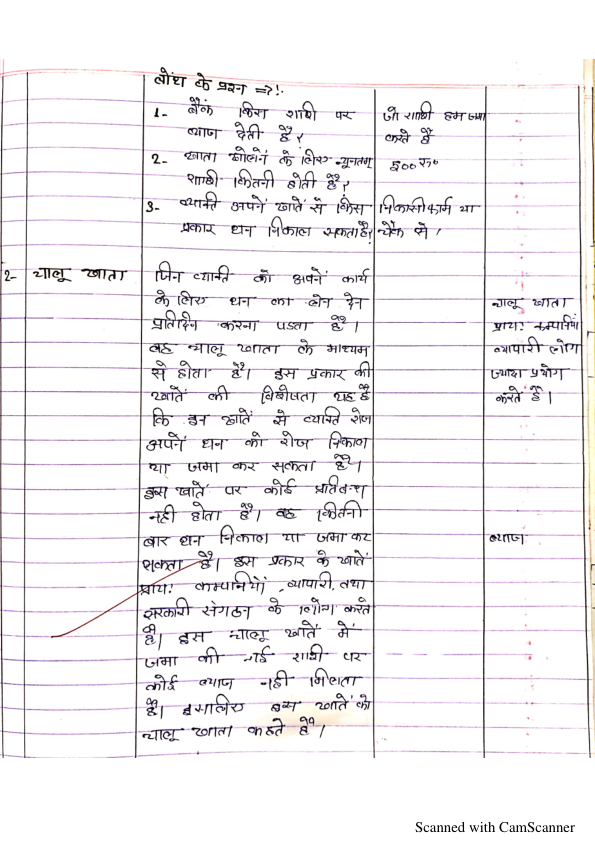 बोध के प्रश्न ⇒?!-
1- बैंक किस राशि पर
ब्याज देती है?
जो राशि हम जमा
करते हैं
2- खाता खोलनें के लिए न्यूनतम्
राशी कितनी होती है?
500 रु०
3- व्यक्ति अपनें खातें से किस
प्रकार धन निकाल सकता है?
निकासी फार्म या
चैक से।
2- चालू खाता
जिन व्यक्ति को अपनें कार्य
के लिए धन का लेन देन
प्रतिदिन करना पडता है।
वह चालू खाता के माध्यम
से होता है। इस प्रकार की
खातें की विशेषता यह है
कि इन खातें से व्यक्ति रोज
अपनें धन को रोज निकाल
या जमा कर सकता है।
इस खातें पर कोई प्रतिबन्ध
नही होता है। वह कितनी
बार धन निकाल या जमा कर
सकता है। इस प्रकार के खातें
प्राय: कम्पानियों, व्यापारी, तथा
सरकारी संगठन के लोग करते
है। इस चालू खातें में
जमा की गई राशी पर
कोई ब्याज नही मिलता
है। इसालिए इस खातें को
चालू खाता कहते है।
चालू खाता
प्राय: कम्पानियां
व्यापारी लोग
ज्यादा प्रयोग
करते है।
ब्याज
Scanned with CamScanner